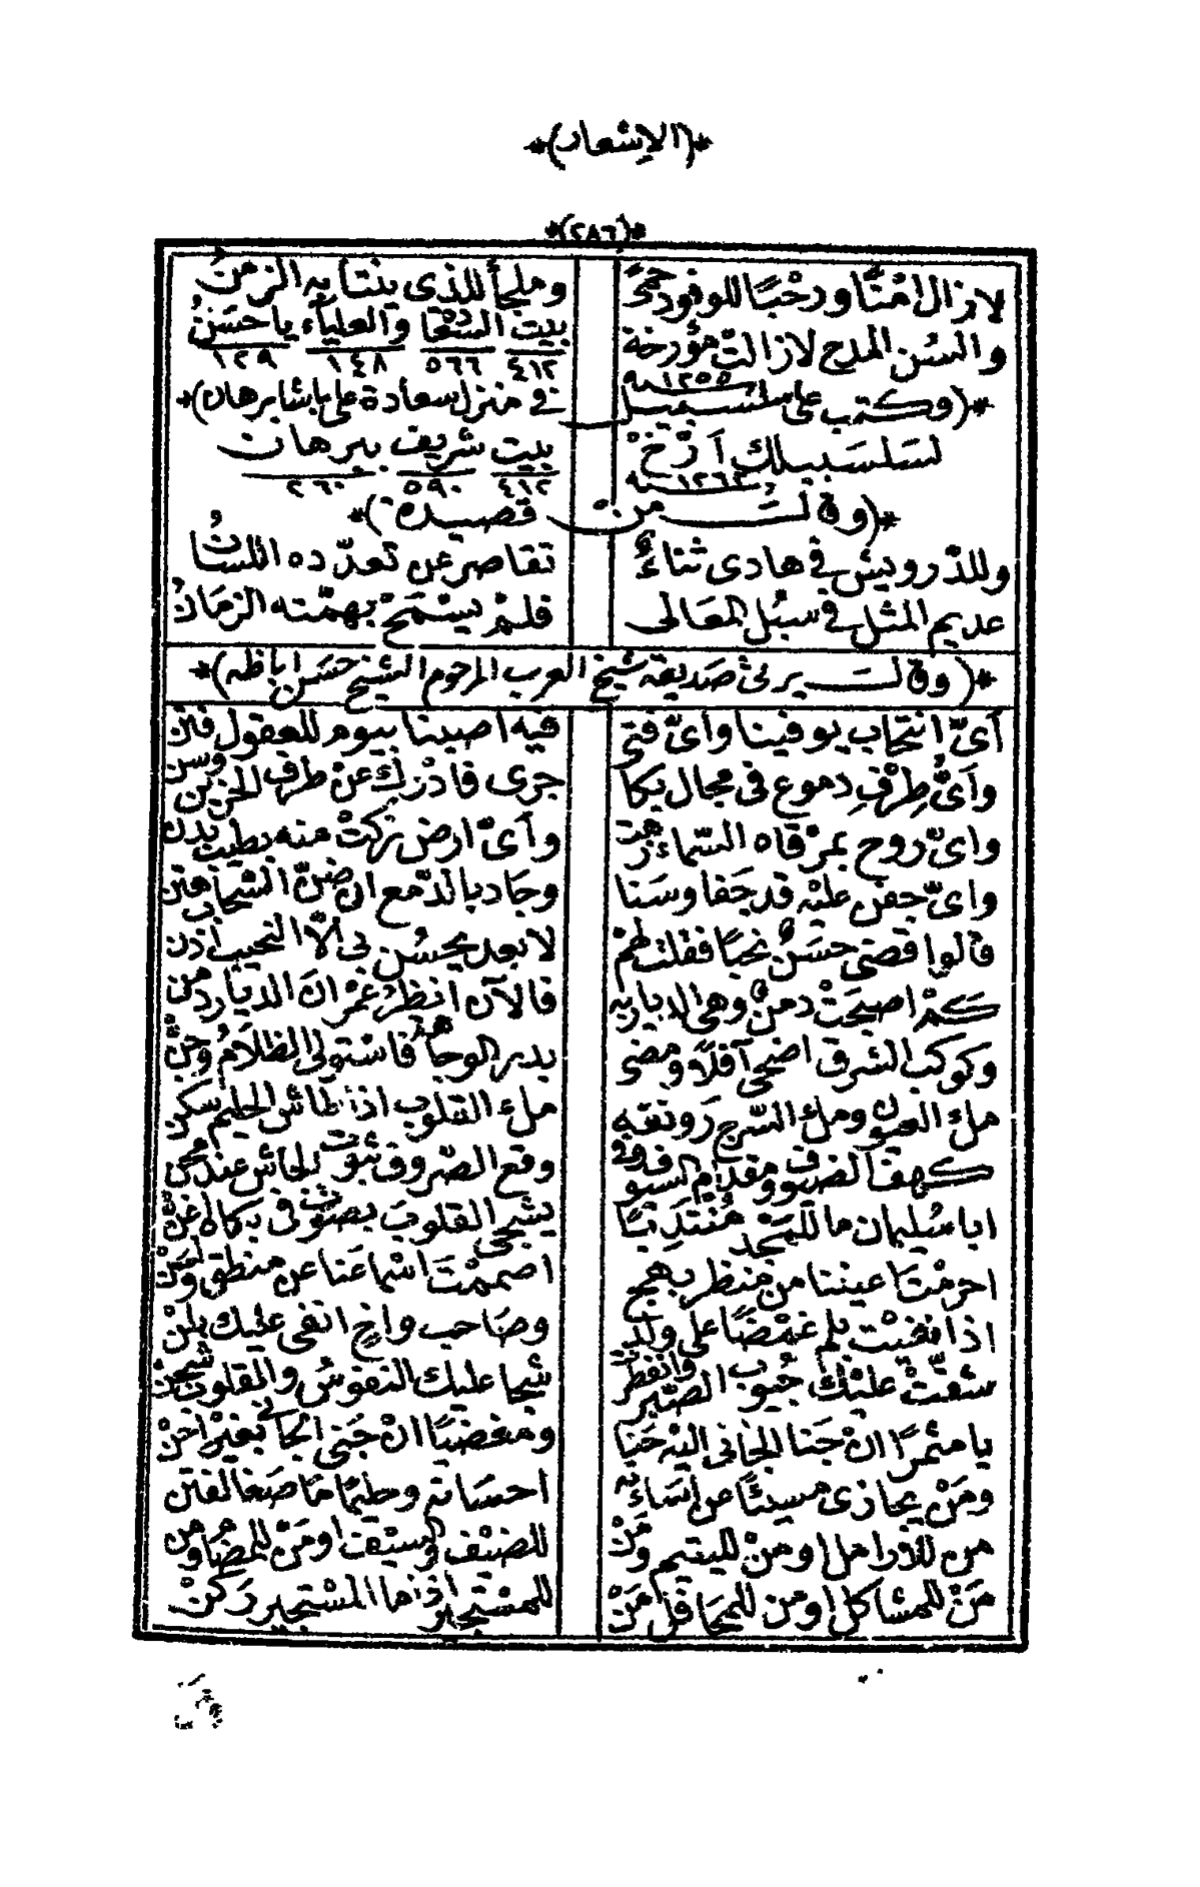 *(الاشعار)*
*(٢٨٦)*
لازال امنًا ورحبًا للوفود حمىً وملجأ للذى ينتابه الزمنُ
والسُن المدح لازالت مؤرخة بيت السُعْدا والعلياء يا حسَنُ
سنه ١٢٥٥ ٤١٢ ٥٦٦ ١٤٨ ١٢٩
*(وكتب على سلسبيل فى منزل سعادة على باشا برهان)*
لسَلسَبيلك اَرّخْ بيت شريف ببرهان
سنه ١٢٦٢ ٤١٢ ٥٩٠ ٢٦٠
*(وقلت من قصيدة)*
وللدّرويش فى هادى ثناءٌ تقاصر عن تعدّده اللسَانُ
عديم المثل فى سبُل المعَالى فلمْ يسْمَحْ بهمّته الزمَانُ
*(وقلت يرثى صديقه شيخ العرب المرحوم الشيخ حسَن اباظه)*
اَىّ انتحاب يوفينا واىّ فتى فيه اصبنا بيوم للعقول فتن
واَىُّ طِرْفِ دموع فى مجال بكا جرى فادْرك عن طرف الحزين وسن
واىّ روح بمرْقاه السّماء زهت وأىّ ارض زكتْ منه بطيب بدن
واىّ جفن عليْه قد جَفا وسَنا وجاد بالدّمع ان ضنّ السّحاب هتن
قالوا قضى حسَنٌ نحبًا فقلت لهمْ لا بعد يحسُن بى الاّ النحيب اذن
كمْ اصبحَتْ دمنٌ وهى الديار به فالآن انظرْ عَمْرانَ الديار دمن
وكوكب الشرق اضحى آفلاً ومضى بدر الوجاهة فاسْتولى الظلاَمُ وجنّ
ملء العيون وملء السّرج رَونقه ملء القلوب اذا طاش الحليم سكن
كهف الضيوف ومقدام السيوف وفى وقع الصّروف ثبوت الجاش عند محن
ابا سُليمان ما للمَجْد مُنْتَدِبًا يشجى القلوبَ بصَوْت فى بكاه اغنّ
احرمْتَ اعيننا من منظر بهج اصممْتَ اسْماعَنا عن منطق ولسَن
اذا نعيْت بلم غمْضًا على ولد وصَاحب واخٍ انفى عليك بلمْن
شقّتْ عليْك جُيوب الصّبر وانفطرتْ شجا عليك النفوسُ والقلوب شجنْ
يا مثمرًا انْ جَنا الجانى اليْه حَنا ومغضيًا انْ جَنى الجانى بغيْر احَنْ
ومَنْ يجازى مسيئًا عن اسَاءَته احسَانه وحليمًا مَا صَغا لفتن
من للارامل او منْ لليتيم ومَنْ للضيْف والسيْف او مَنْ للمضاء ومن
مَنْ للمشاكل او من للمحَافل اَمَنْ للمستجير اذا ما المسْتجير رَكنْ